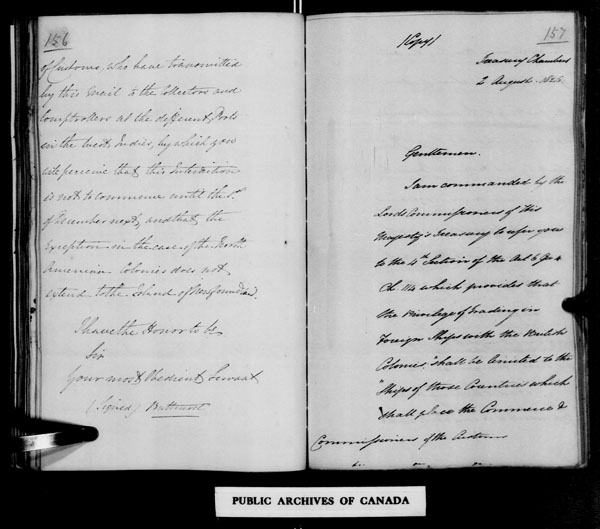 156
of Customs, who have transmitted
by this Mail to the Collectors and
Comptrollers at the different Ports
in the West Indies, by which you
will perceive that this Interdiction
is not to commence until the 1st
of December next, and that the
Exception in the case of the North
American Colonies does not
extend to the Island of Newfoundland.
I have the Honor to be
Sir
Your most Obedient Servant
(Signed) Bathurst
157
(Copy)
Treasury Chambers
2 August 1826
Gentlemen.
I am commanded by the
Lords Commissioners of His
Majesty's Treasury to refer you
to the 4th Section of the Act 6 Geo 4
Ch 114 which provides that
the Privilege of trading in
Foreign Ships with the British
Colonies "shall be limited to the
"Ships of those Countries which
"shall place the Commerce &
Commissioners of the Customs
PUBLIC ARCHIVES OF CANADA